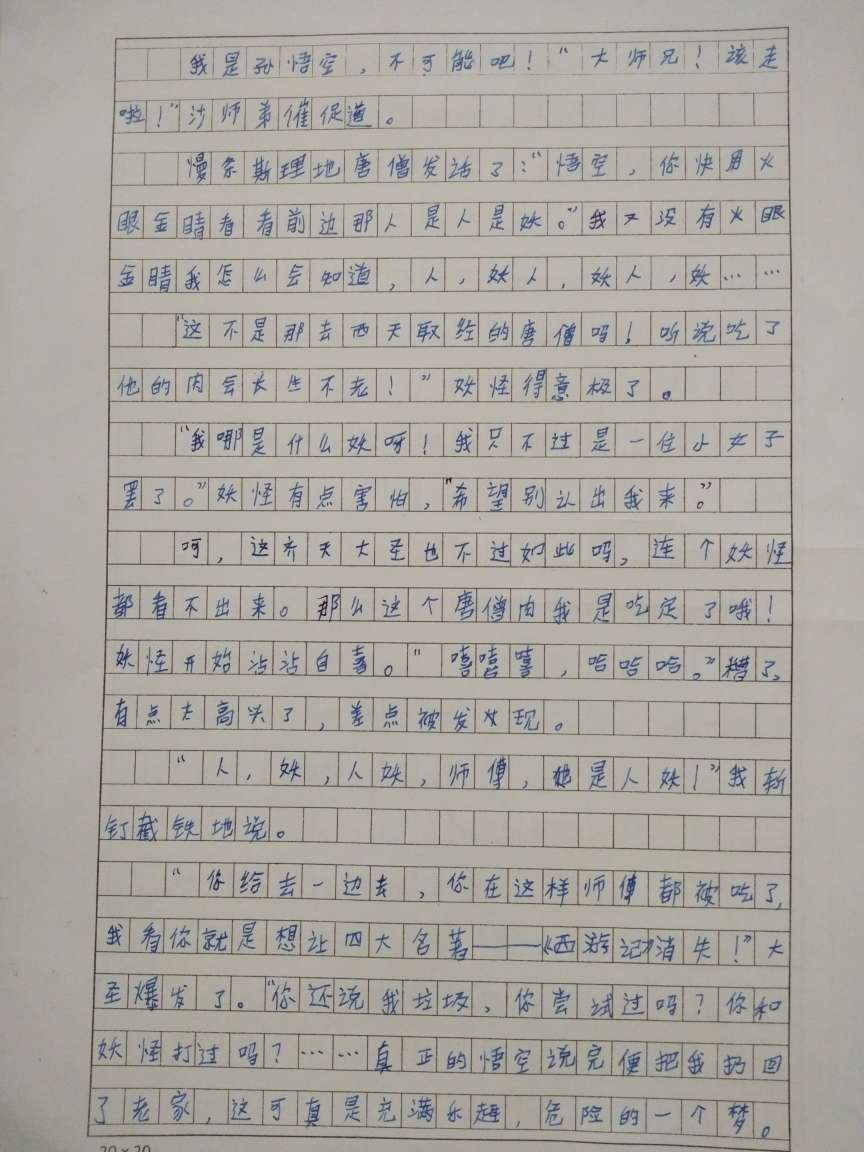 我是孙悟空，不可能吧！“大师兄！该走
啦！”沙师弟催促道。
慢条斯理地唐僧发话了：“悟空，你快用火
眼金睛看看前边那人是人是妖。”我又没有火眼
金睛我怎么会知道，人，妖人，妖人，妖……
“这不是那去西天取经的唐僧吗！听说吃了
他的肉会长生不老！”妖怪得意极了。
“我哪是什么妖呀！我只不过是一位小女子
罢了。”妖怪有点害怕，“希望别认出我来”。
呵，这齐天大圣也不过如此吗，连个妖怪
都看不出来。那么这个唐僧肉我是吃定了哦！
妖怪开始沾沾自喜。“嘻嘻嘻，哈哈哈。”糟了，
有点太高兴了，差点被发现。
“人，妖，人妖，师傅，她是人妖！”我斩
钉截铁地说。
“你给去一边去，你在这样师傅都被吃了，
我看你就是想让四大名著——《西游记》消失！”大
圣爆发了。“你还说我垃圾，你尝试过吗？你和
妖怪打过吗？……真正的悟空说完便把我扔回
了老家，这可真是充满乐趣，危险的一个梦。
20×20